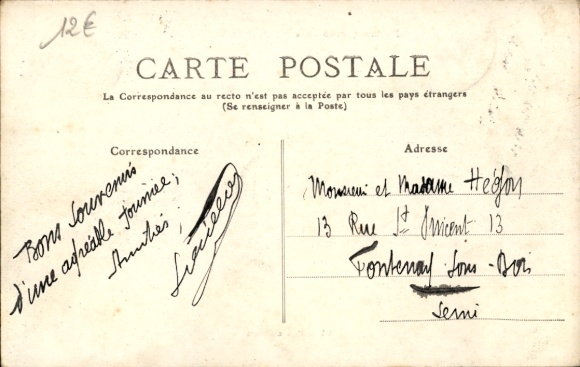 12€
CARTE POSTALE
La Correspondance au recto n'est pas acceptée par tous les pays étrangers
(Se renseigner à la Poste)
Correspondance
Bons Souvenirs
d'une agréable journée,
Amitiés
Adresse
Monsieur et Madame Héglon
13 Rue St Vincent 13
Fontenay Sous-Bois
Seine